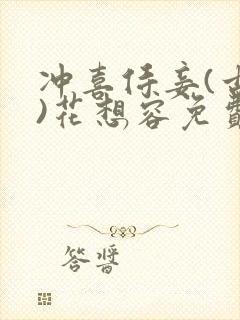 冲喜侍妾(古
)花想容免費
答醬